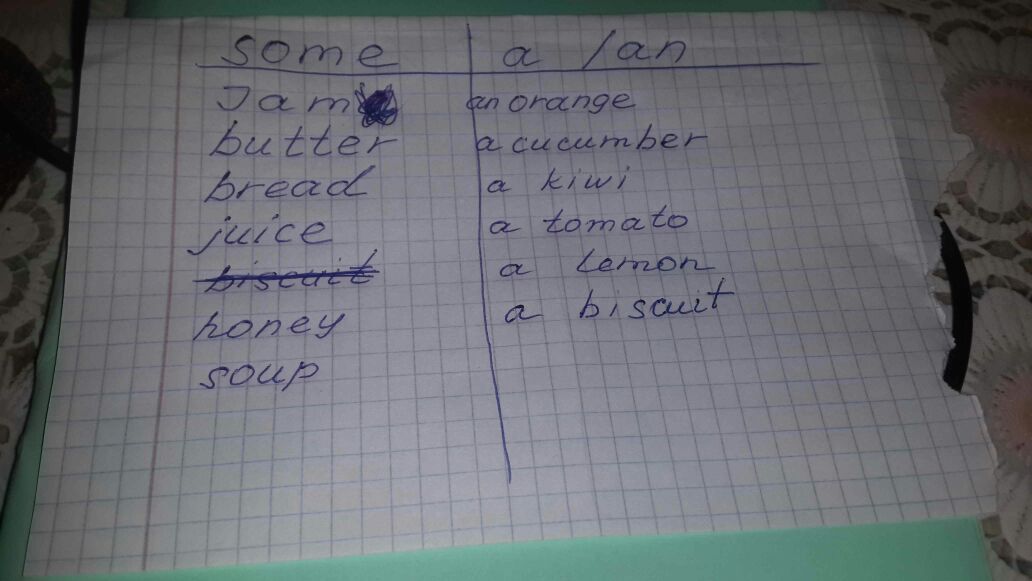 some a /an
Jam an orange
butter a cucumber
bread a kiwi
juice a tomato
biscuit a lemon
honey a biscuit
soup